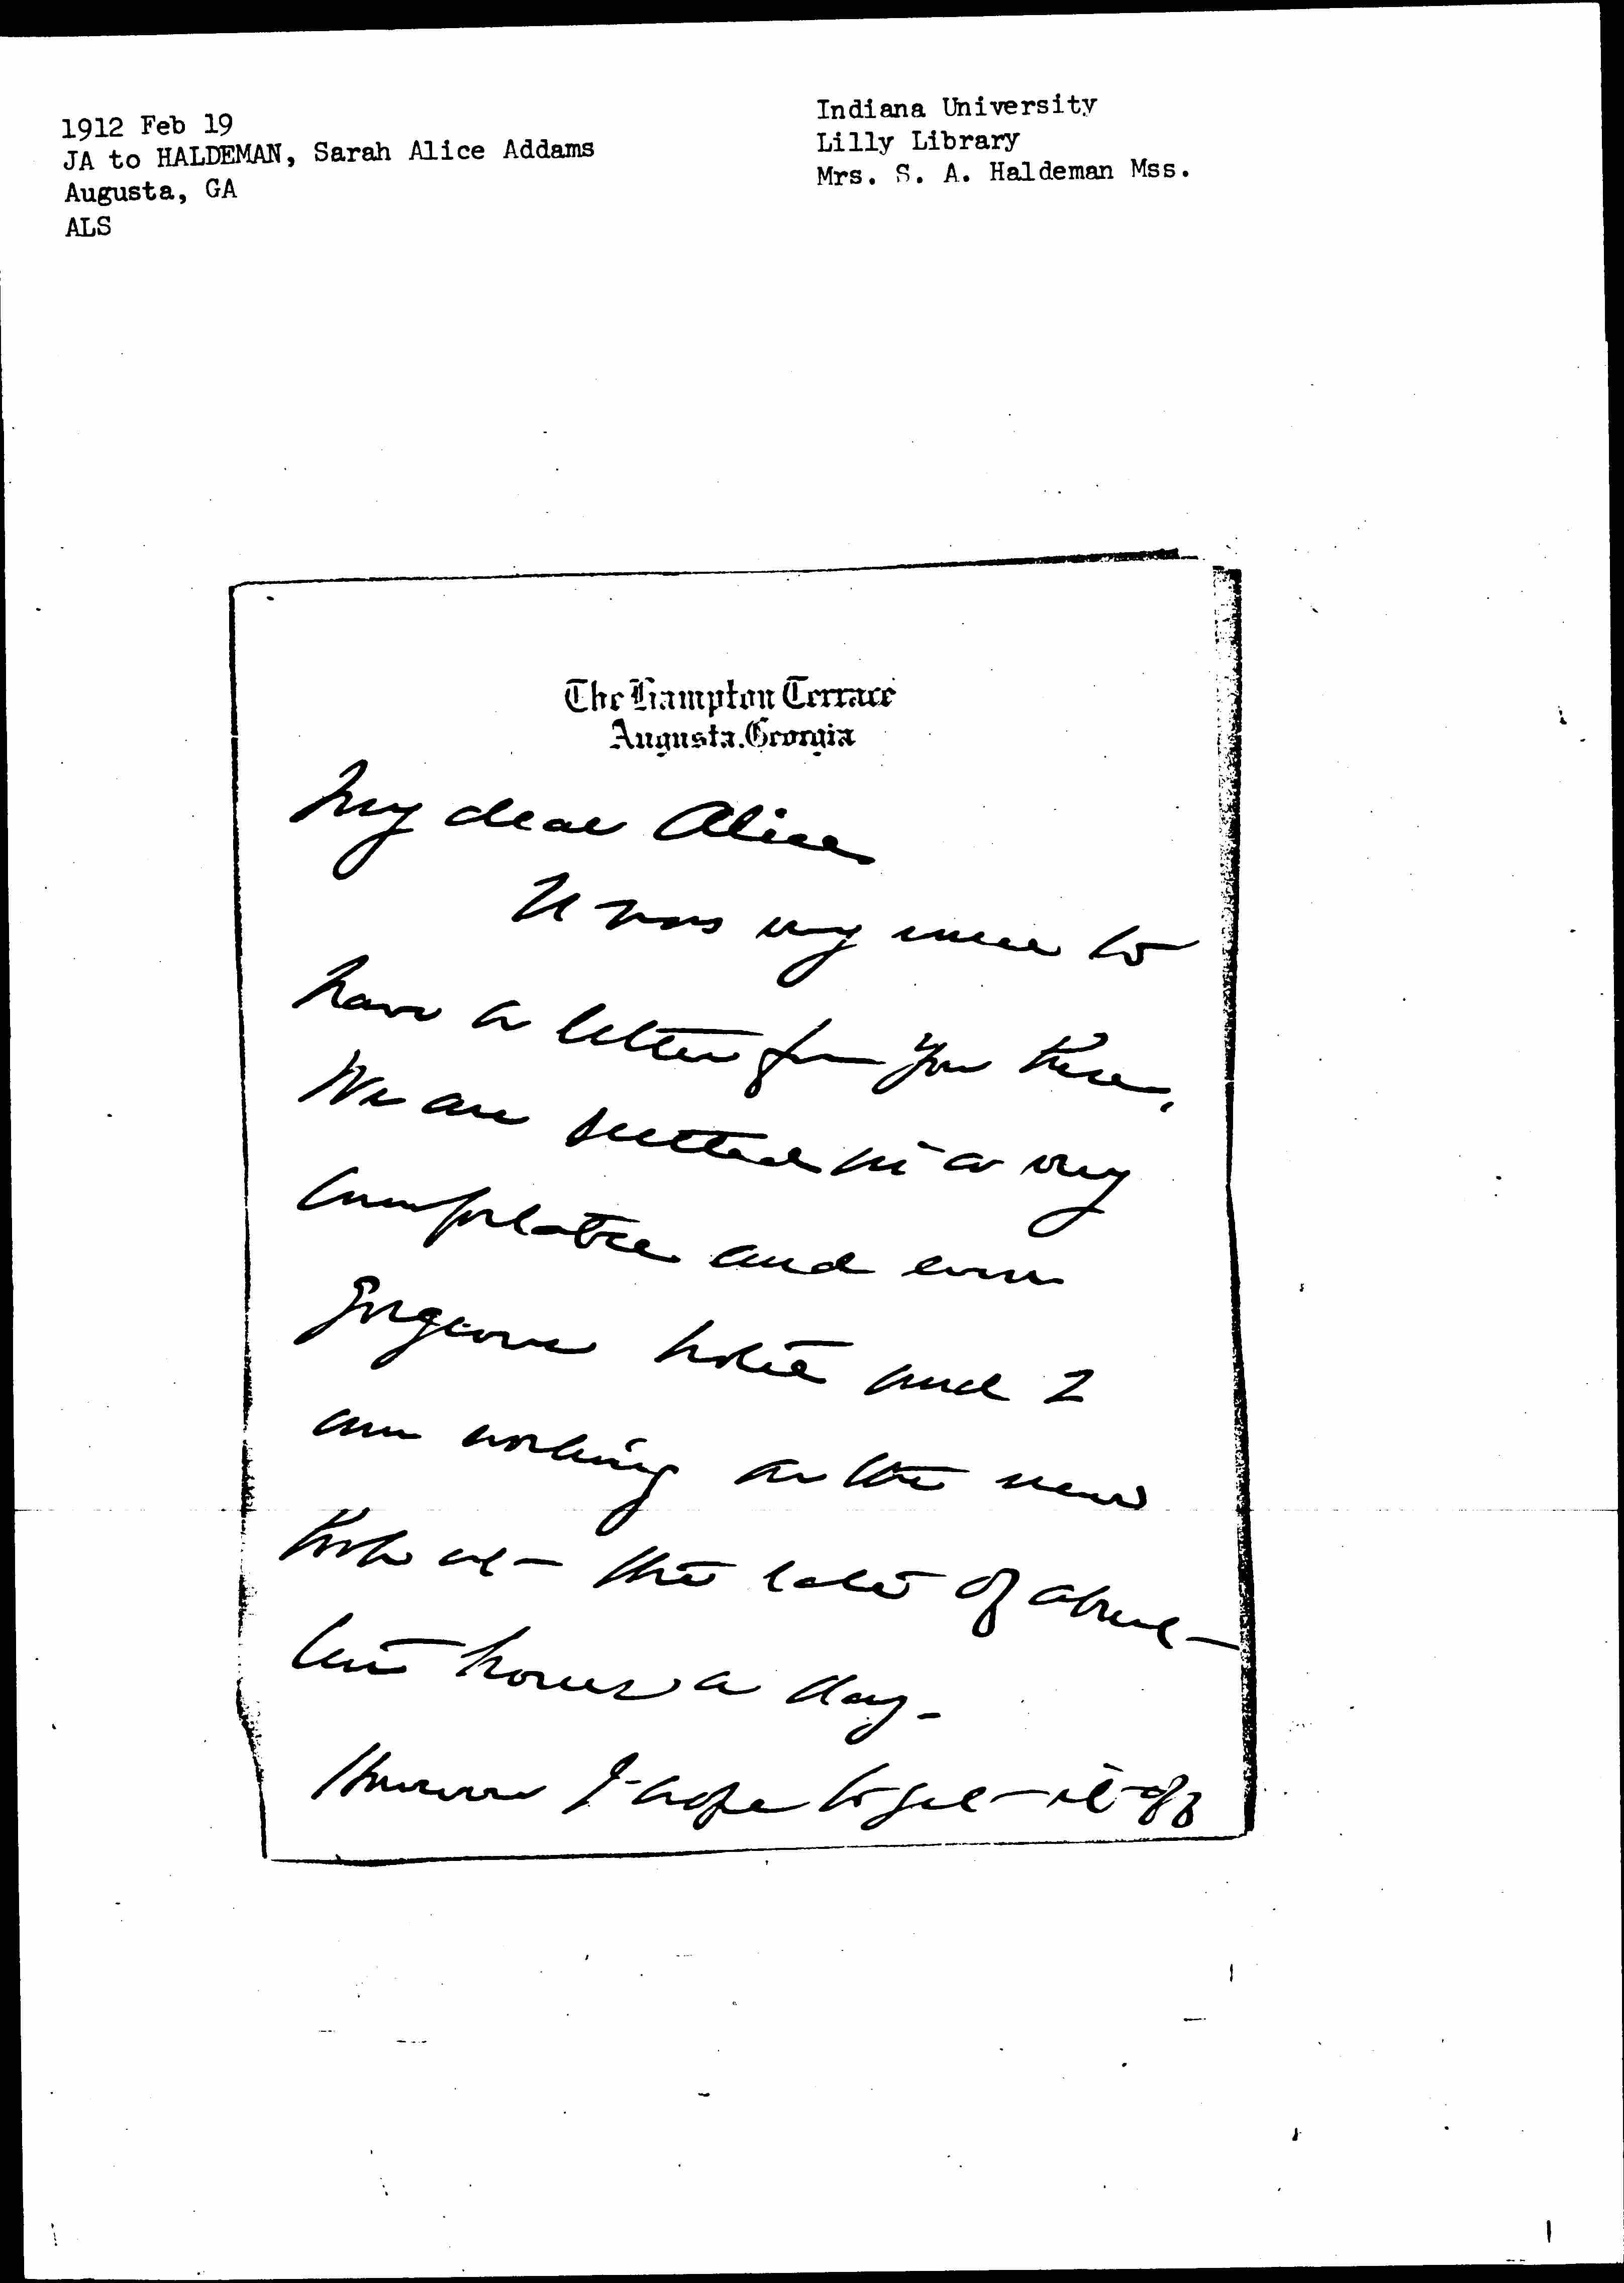 1912 Feb 19
JA to HALDEMAN, Sarah Alice Addams
Augusta, GA
ALS
Indiana University
Lilly Library
Mrs. S. A. Haldeman Mss.
The Hampton Terrace
Augusta, Georgia
My dear Alice
It was very nice to
have a letter from you here.
We are settled in a very
comfortable and even
gorgeous hotel and I
am working on the new
book at the rate of about
ten hours a day-
However I hope to get it off